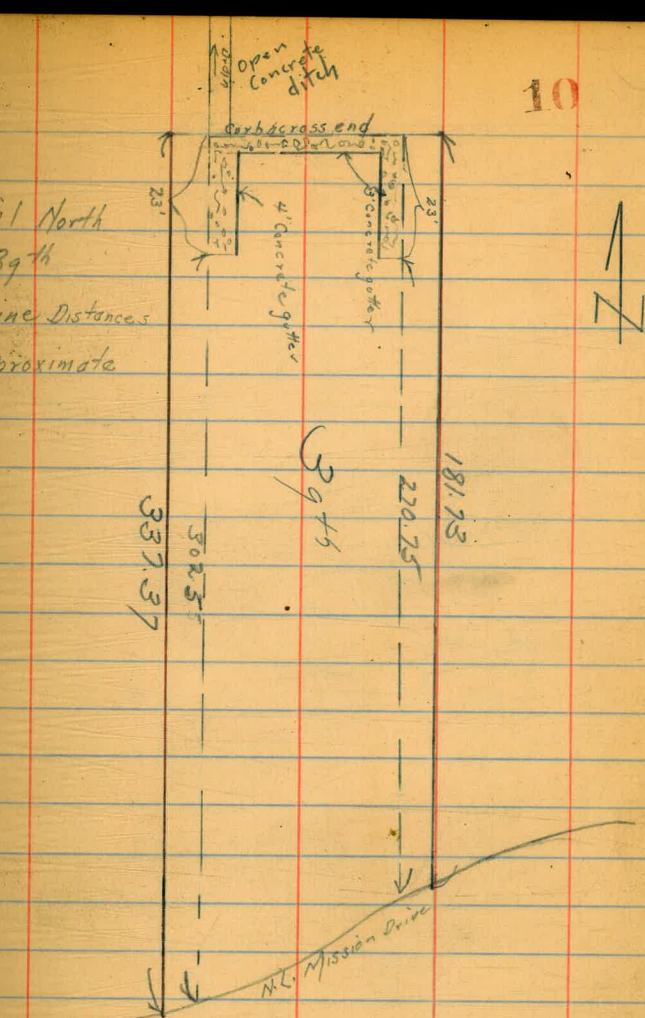 10
Drain
Open
Concrete
ditch
Curb across end
23'
4' Concrete gutter
3' Concrete gutter
23'
North
39th
Distances
39th
181.73
220.75
302.5
337.37
N
N.L. Mission Drive